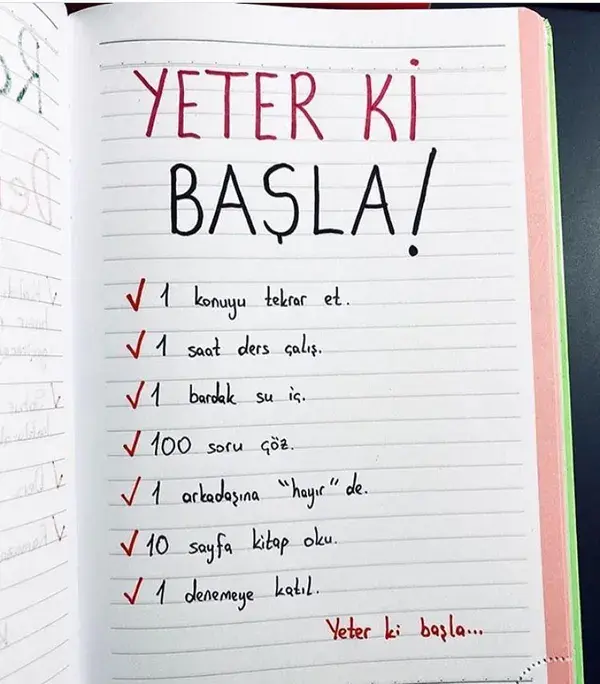 YETER Kİ
BAŞLA!
✓ 1 konuyu tekrar et.
✓ 1 saat ders çalış.
✓ 1 bardak su iç.
✓ 100 soru çöz.
✓ 1 arkadaşına "hayır" de.
✓ 10 sayfa kitap oku.
✓ 1 denemeye katıl.
Yeter ki başla...